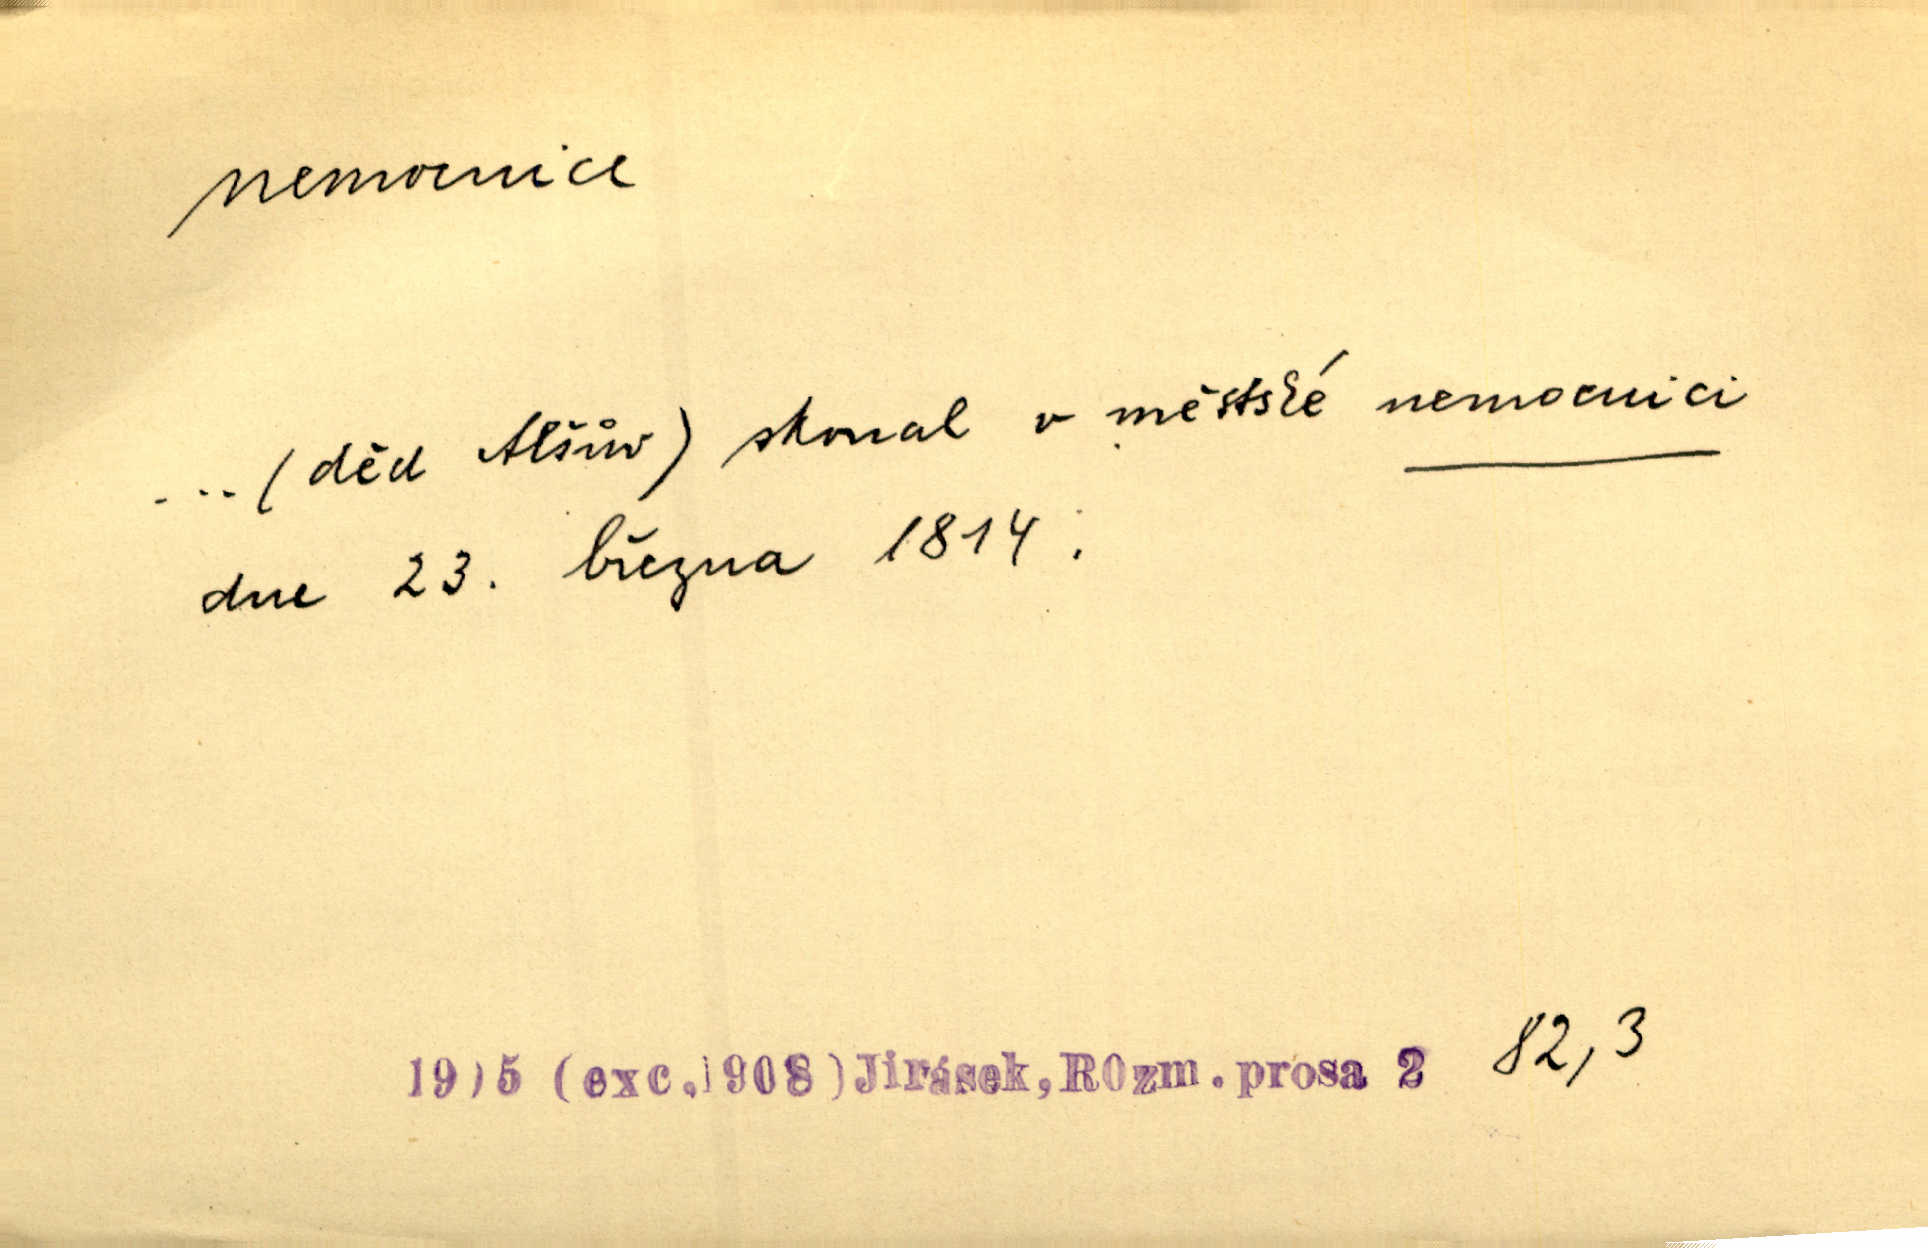 nemocnice
... (děd Alšův) skonal v městské nemocnici
dne 23. března 1814;
(exc.1908)Jirásek,ROzm.prosa 2 82,3